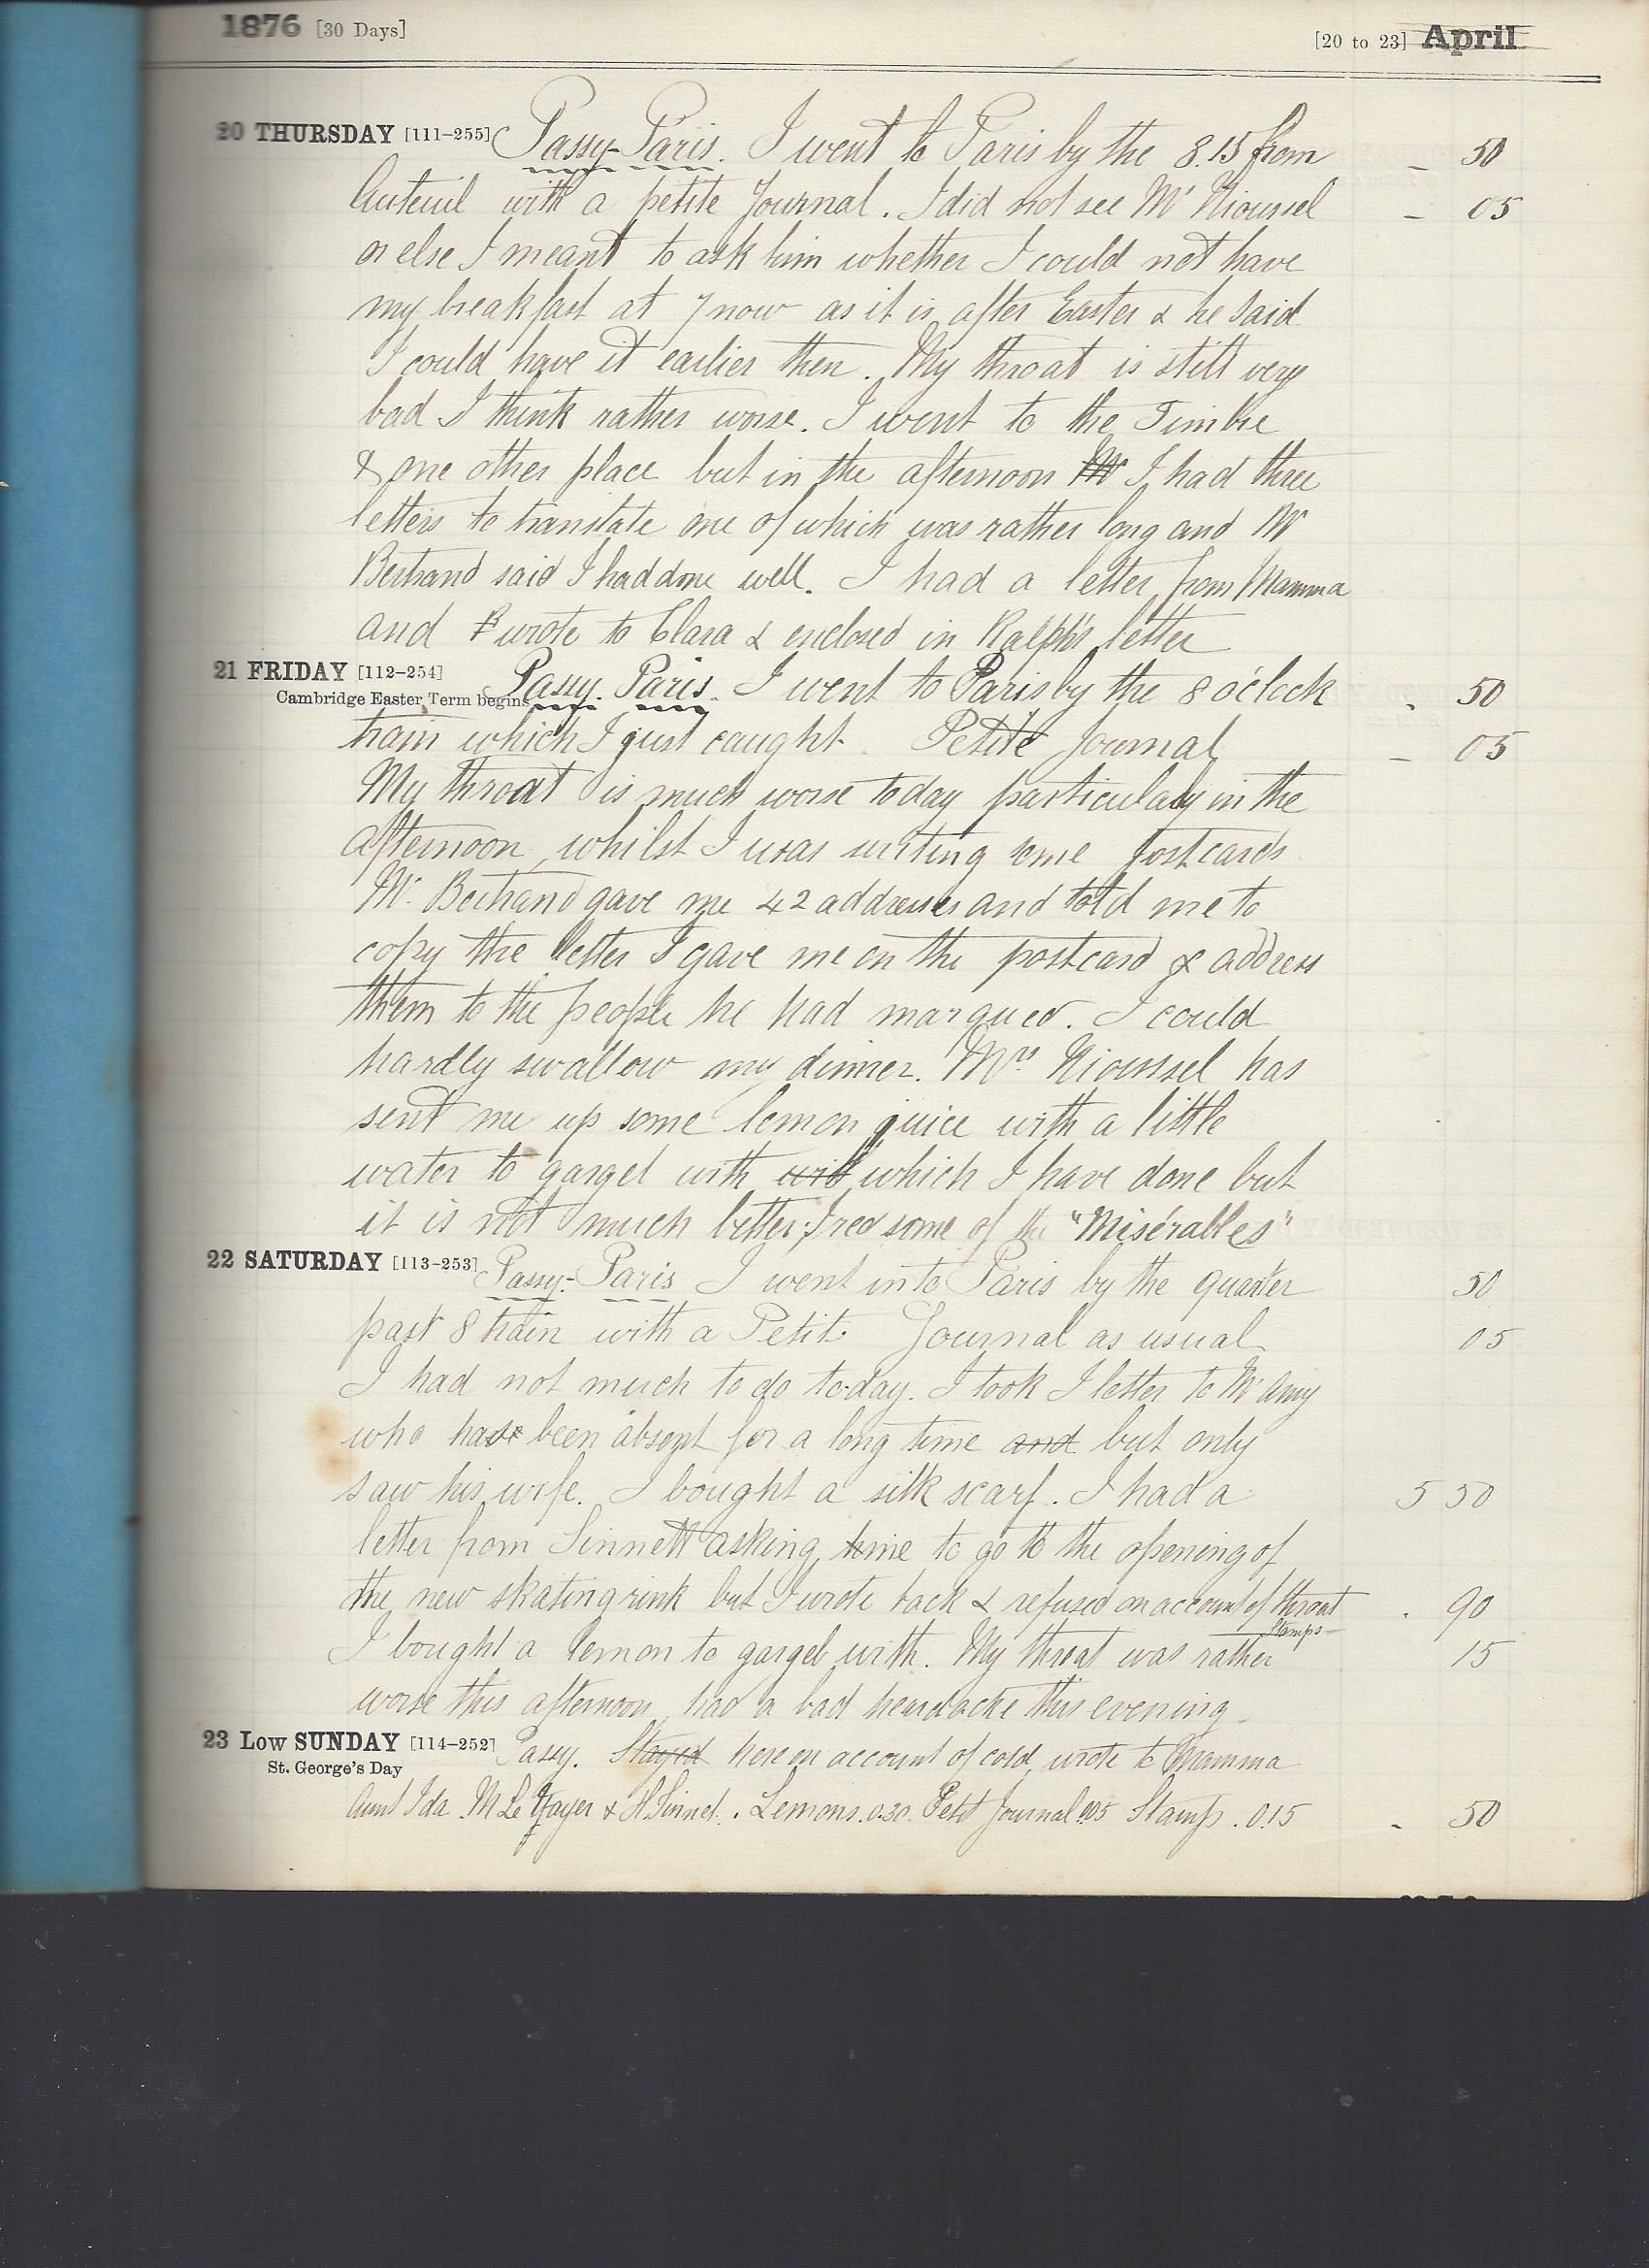 1876 [30 Days] [20 to 23] April
20 THURSDAY [111-255] Passy-Paris. I went to Paris by the 8.15 from - 50
Auteuil with a petite Journal. I did not see Mr Rioussel - 05
or else I meant to ask him whether I could not have
my breakfast at 7 now as it is after Easter & he said
I could have it earlier then. My throat is still very
bad I think rather worse. I went to the Timbre
& one other place but in the afternoon Mr I had three
letters to translate one of which was rather long and Mr
Bertrand said I had done well. I had a letter from Mamma
and I wrote to Clara & enclosed in Ralph's letter
21 FRIDAY [112-254] Passy. Paris. I went to Paris by the 8 o'clock - 50
Cambridge Easter Term begins
train which I just caught. Petite Journal - 05
My throat is much worse today particulaly in the
afternoon whilst I was writing some postcards
Mr. Bertrand gave me 42 addresses and told me to
copy the letter I gave me on the postcard & address
them to the people he had marqued. I could
hardly swallow my dinner. Mrs Rioussel has
sent me up some lemon juice with a little
water to gargel with with which I have done but
it is not much better; I red some of the "Misérables"
22 SATURDAY [113-253] Passy-Paris I went into Paris by the quarter 50
past 8 train with a Petit. Journal as usual 05
I had not much to do to-day. I took I letter to Mr Amy
who has been absent for a long time and but only
saw his wife. I bought a silk scarf. I had a 5 50
letter from Sinnett asking me to go to the opening of
the new skating rink but I wrote back & refused on account of throat . 90
Stamps
I bought a lemon to gargel with. My throat was rather 15
worse this afternoon had a bad headache this evening
23 Low SUNDAY [114-252] Passy. Stayed here on account of cold, wrote to Mamma
St. George's Day
Aunt Ida M Le Gayer & H Sinnet. Lemons. 0.30. Petit Journal 005 Stamps. 0.15 - 50